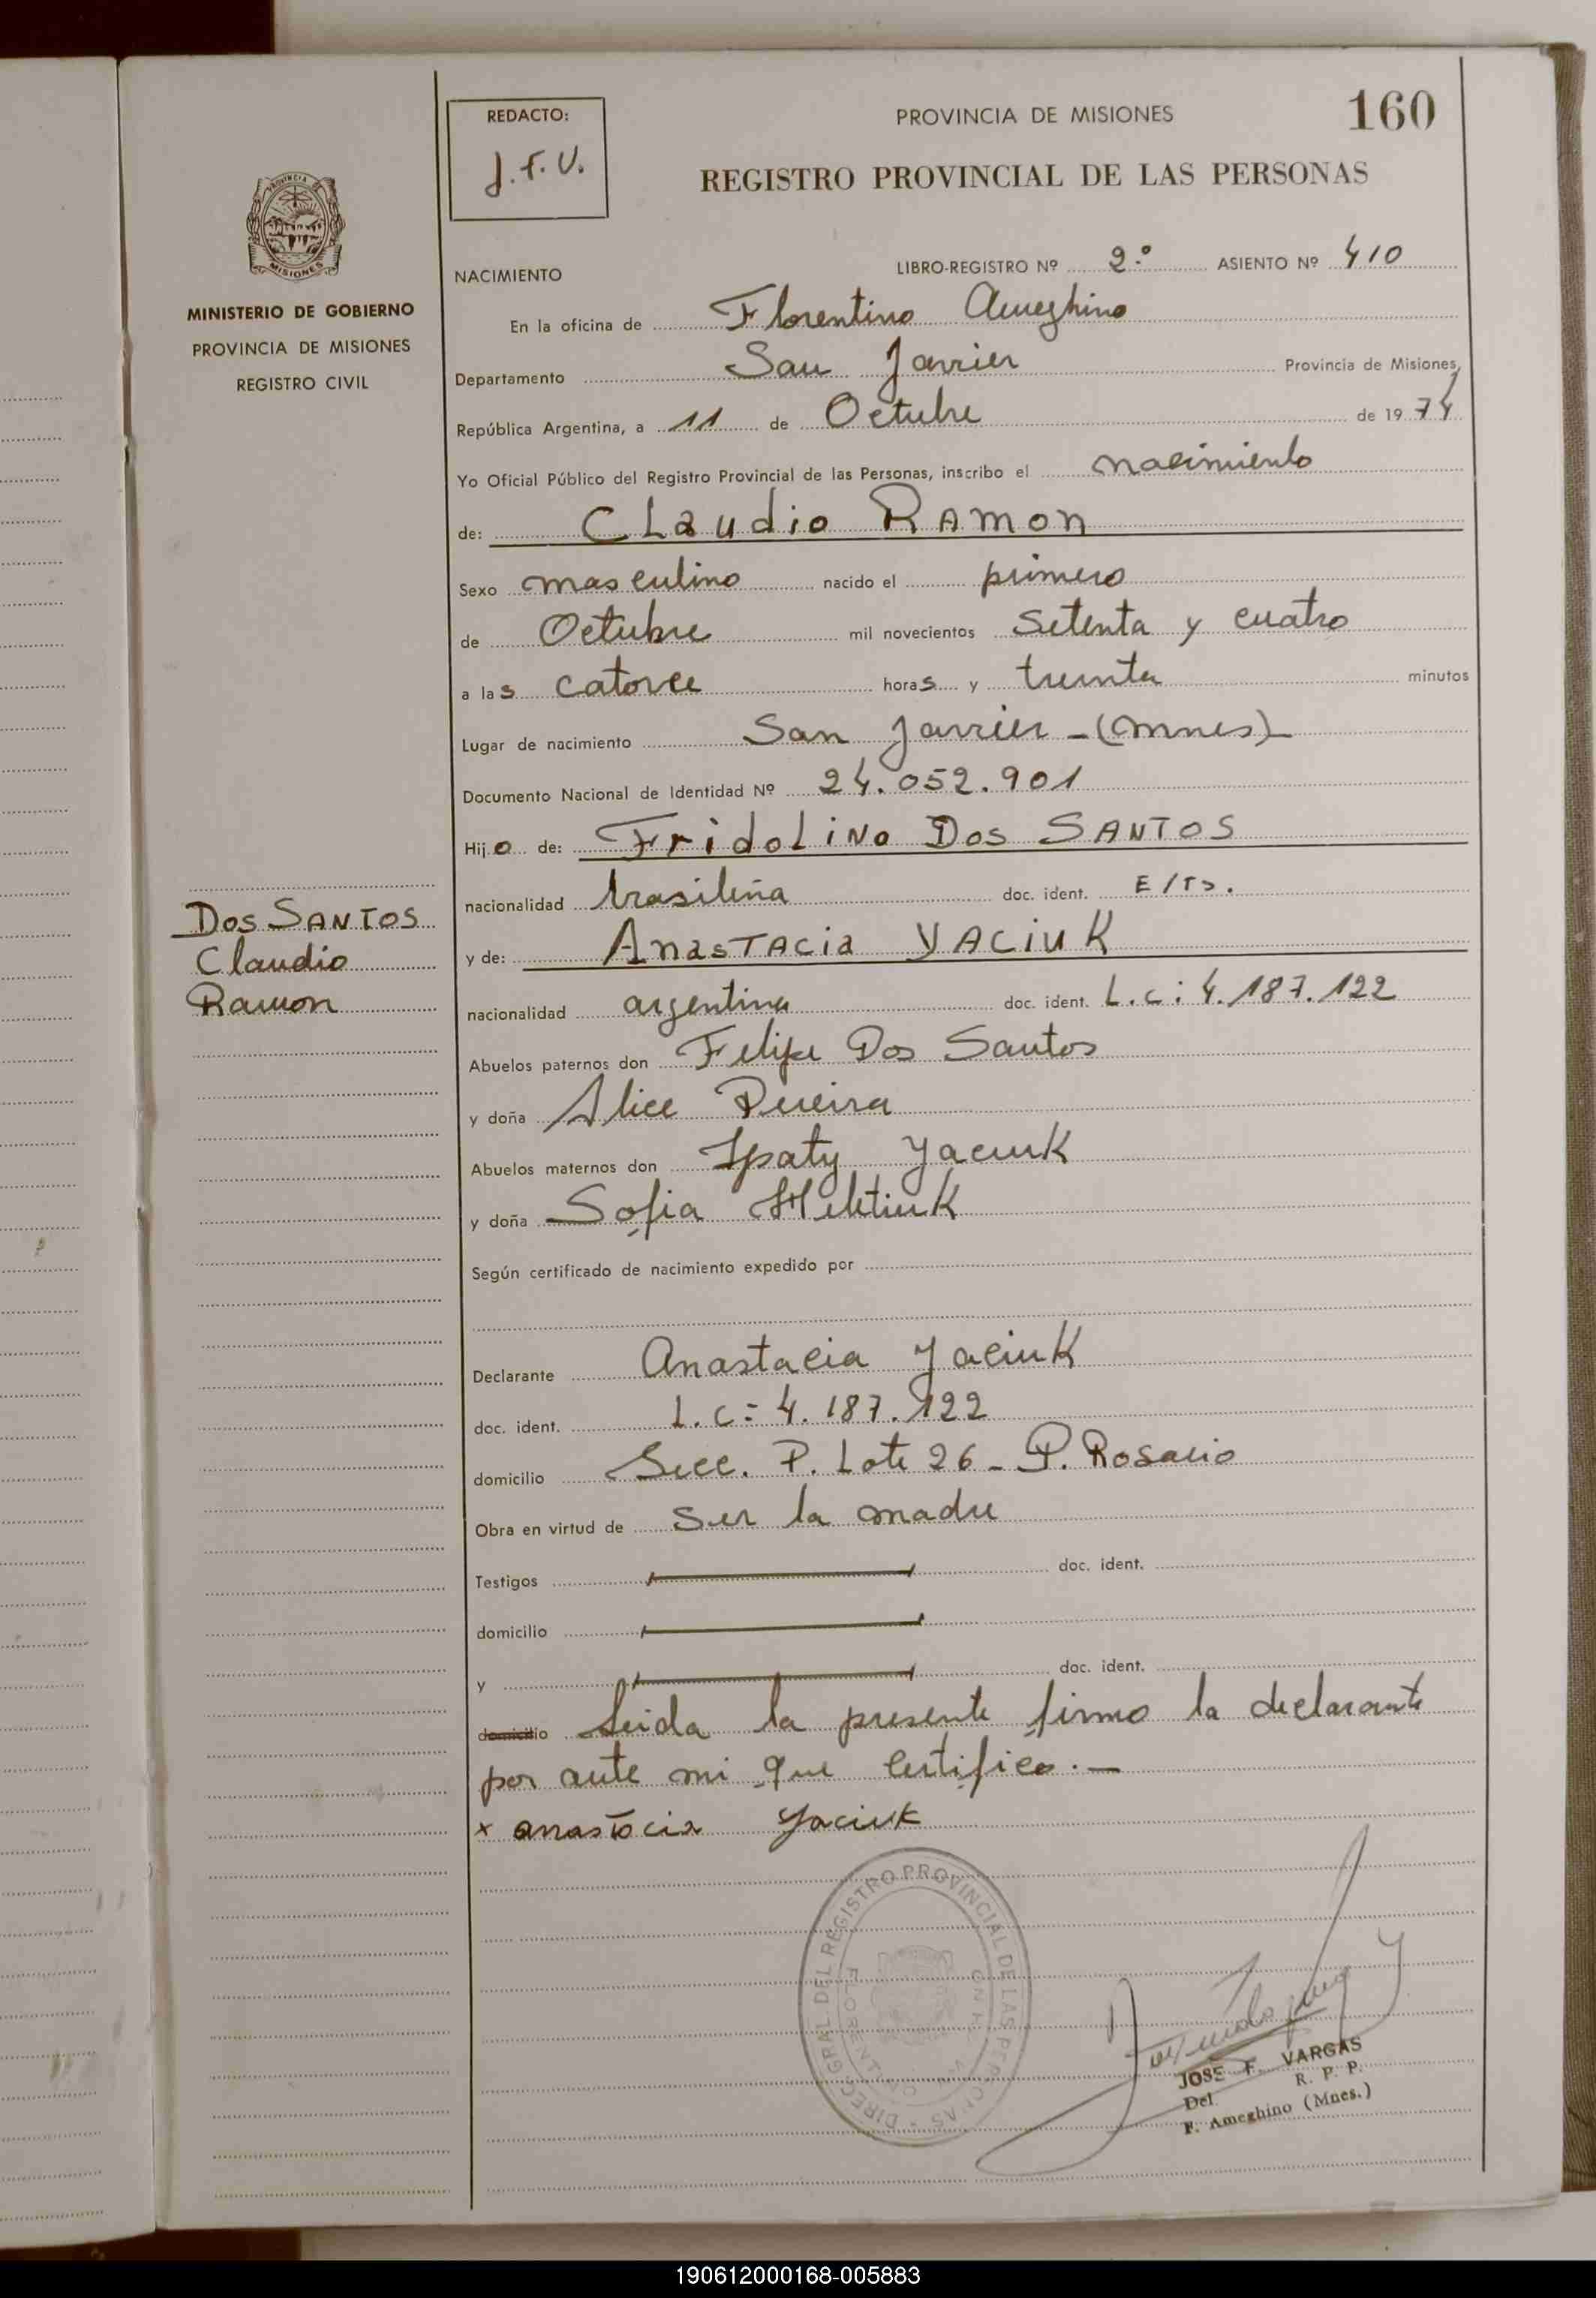 REDACTO:
J.F.V.
PROVINCIA DE MISIONES
160
REGISTRO PROVINCIAL DE LAS PERSONAS
PROVINCIA DE
MISIONES
MINISTERIO DE GOBIERNO
PROVINCIA DE MISIONES
REGISTRO CIVIL
NACIMIENTO LIBRO-REGISTRO Nº 2.º ASIENTO Nº 410
En la oficina de Florentino Ameghino
Departamento San Javier Provincia de Misiones,
República Argentina, a 11 de Octubre de 1974
Yo Oficial Público del Registro Provincial de las Personas, inscribo el nacimiento
de: CLaudio RAMON
Sexo masculino nacido el primero
de Octubre mil novecientos setenta y cuatro
a las catorce horas y treinta minutos
Lugar de nacimiento San Javier - (Mnes)-
Documento Nacional de Identidad Nº 24.052.901
Hijo de: FridoLiNo Dos SANTOS
nacionalidad brasileña doc. ident. E/Ts.
y de: AnasTAcia YACiuK
nacionalidad argentina doc. ident. L.c: 4.187.122
Abuelos paternos don Felipe Dos Santos
y doña Alice Pereira
Abuelos maternos don Ipaty Yaciuk
y doña Sofia
Según certificado de nacimiento expedido por
Declarante Anastacia Yaciuk
doc. ident. L.c: 4.187.122
domicilio Secc. P. Lote 26 - P. Rosario
Obra en virtud de ser la madre
Testigos doc. ident.
domicilio
y doc. ident.
domicilio Leida la presente firmo la declarante
por ante mi que certifico.-
x anastacia Yaciuk
DOS SANTOS
Claudio
Ramon
DIREC. GRAL DEL REGISTRO PROVINCIAL DE LAS PERSONAS
JOSE F. VARGAS
Del. R. P. P.
F. Ameghino (Mnes.)
190612000168-005883